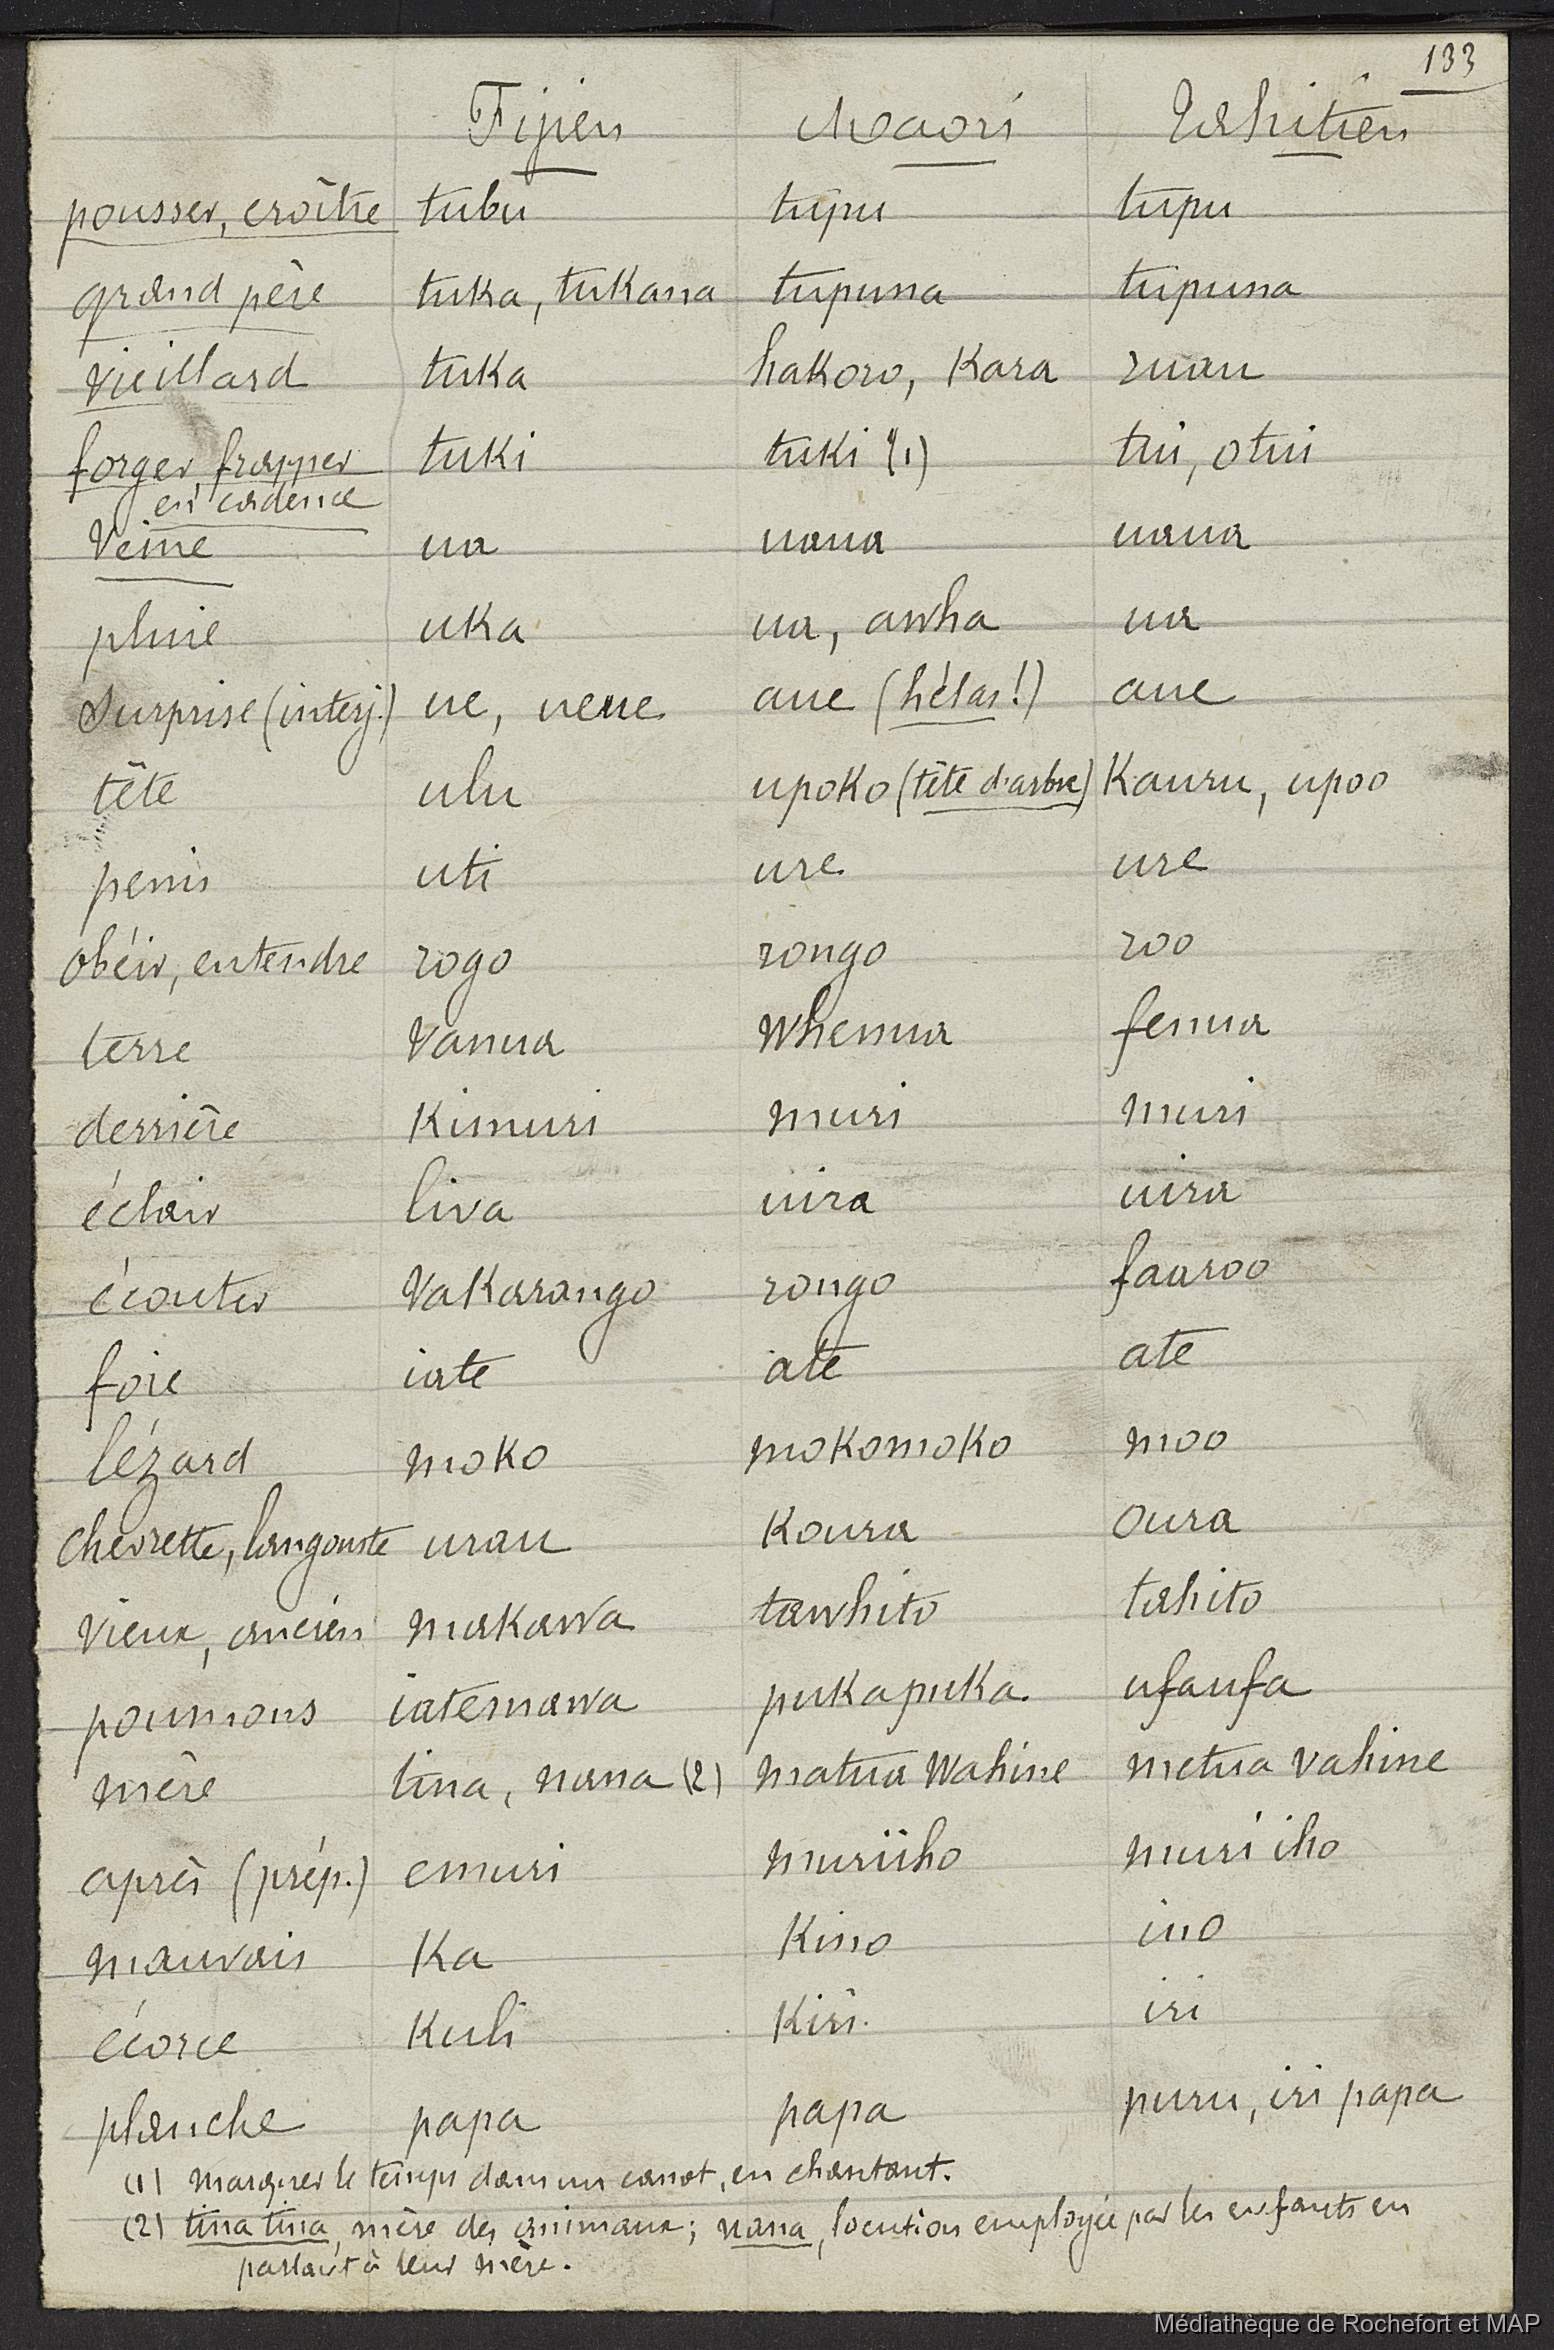 133
Fijien Maori Tahitien
pousser, croître tubu tupu tupu
grand père tuka, tukana tupuna tupuna
vieillard tuka hakoro, Kara ruau
forger, frapper tuki tuki (1) tui, otui
en cadence
Veine ua uaua uaua
pluie uka ua, awha ua
Surprise (interj.) ue, ueue aue (hélas!) aue
tête ulu upoko (tête d'arbre) Kauru, upoo
penis uti ure ure
obéir, entendre rogo rongo roo
terre Vanua Whenua fenua
derrière Kimuri muri muri
éclair liva uira uira
écouter Vakarongo rongo faaroo
foie iate ate ate
lézard moko mokomoko moo
chevrette, langouste urau Koura oura
vieux, ancien makawa tawhito tahito
poumons iatemawa pukapuka ufaufa
mère tina, nana (2) matua Wahine metua vahine
après (prép.) emuri muriiho muri iho
mauvais Ka Kino ino
écorce Kuli Kiri iri
planche papa papa puru, iri papa
(1) marquer le temps dans un canot, en chantant.
(2) tina tina, mère des animaux; nana, locution employée par les enfants en
parlant à leur mère.
Médiathèque de Rochefort et MAP